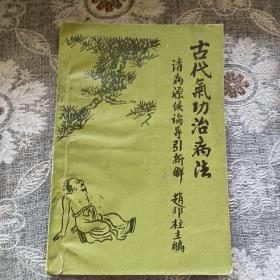 古代氣功治病法
诸病源候论导引新解
趙邦柱主編